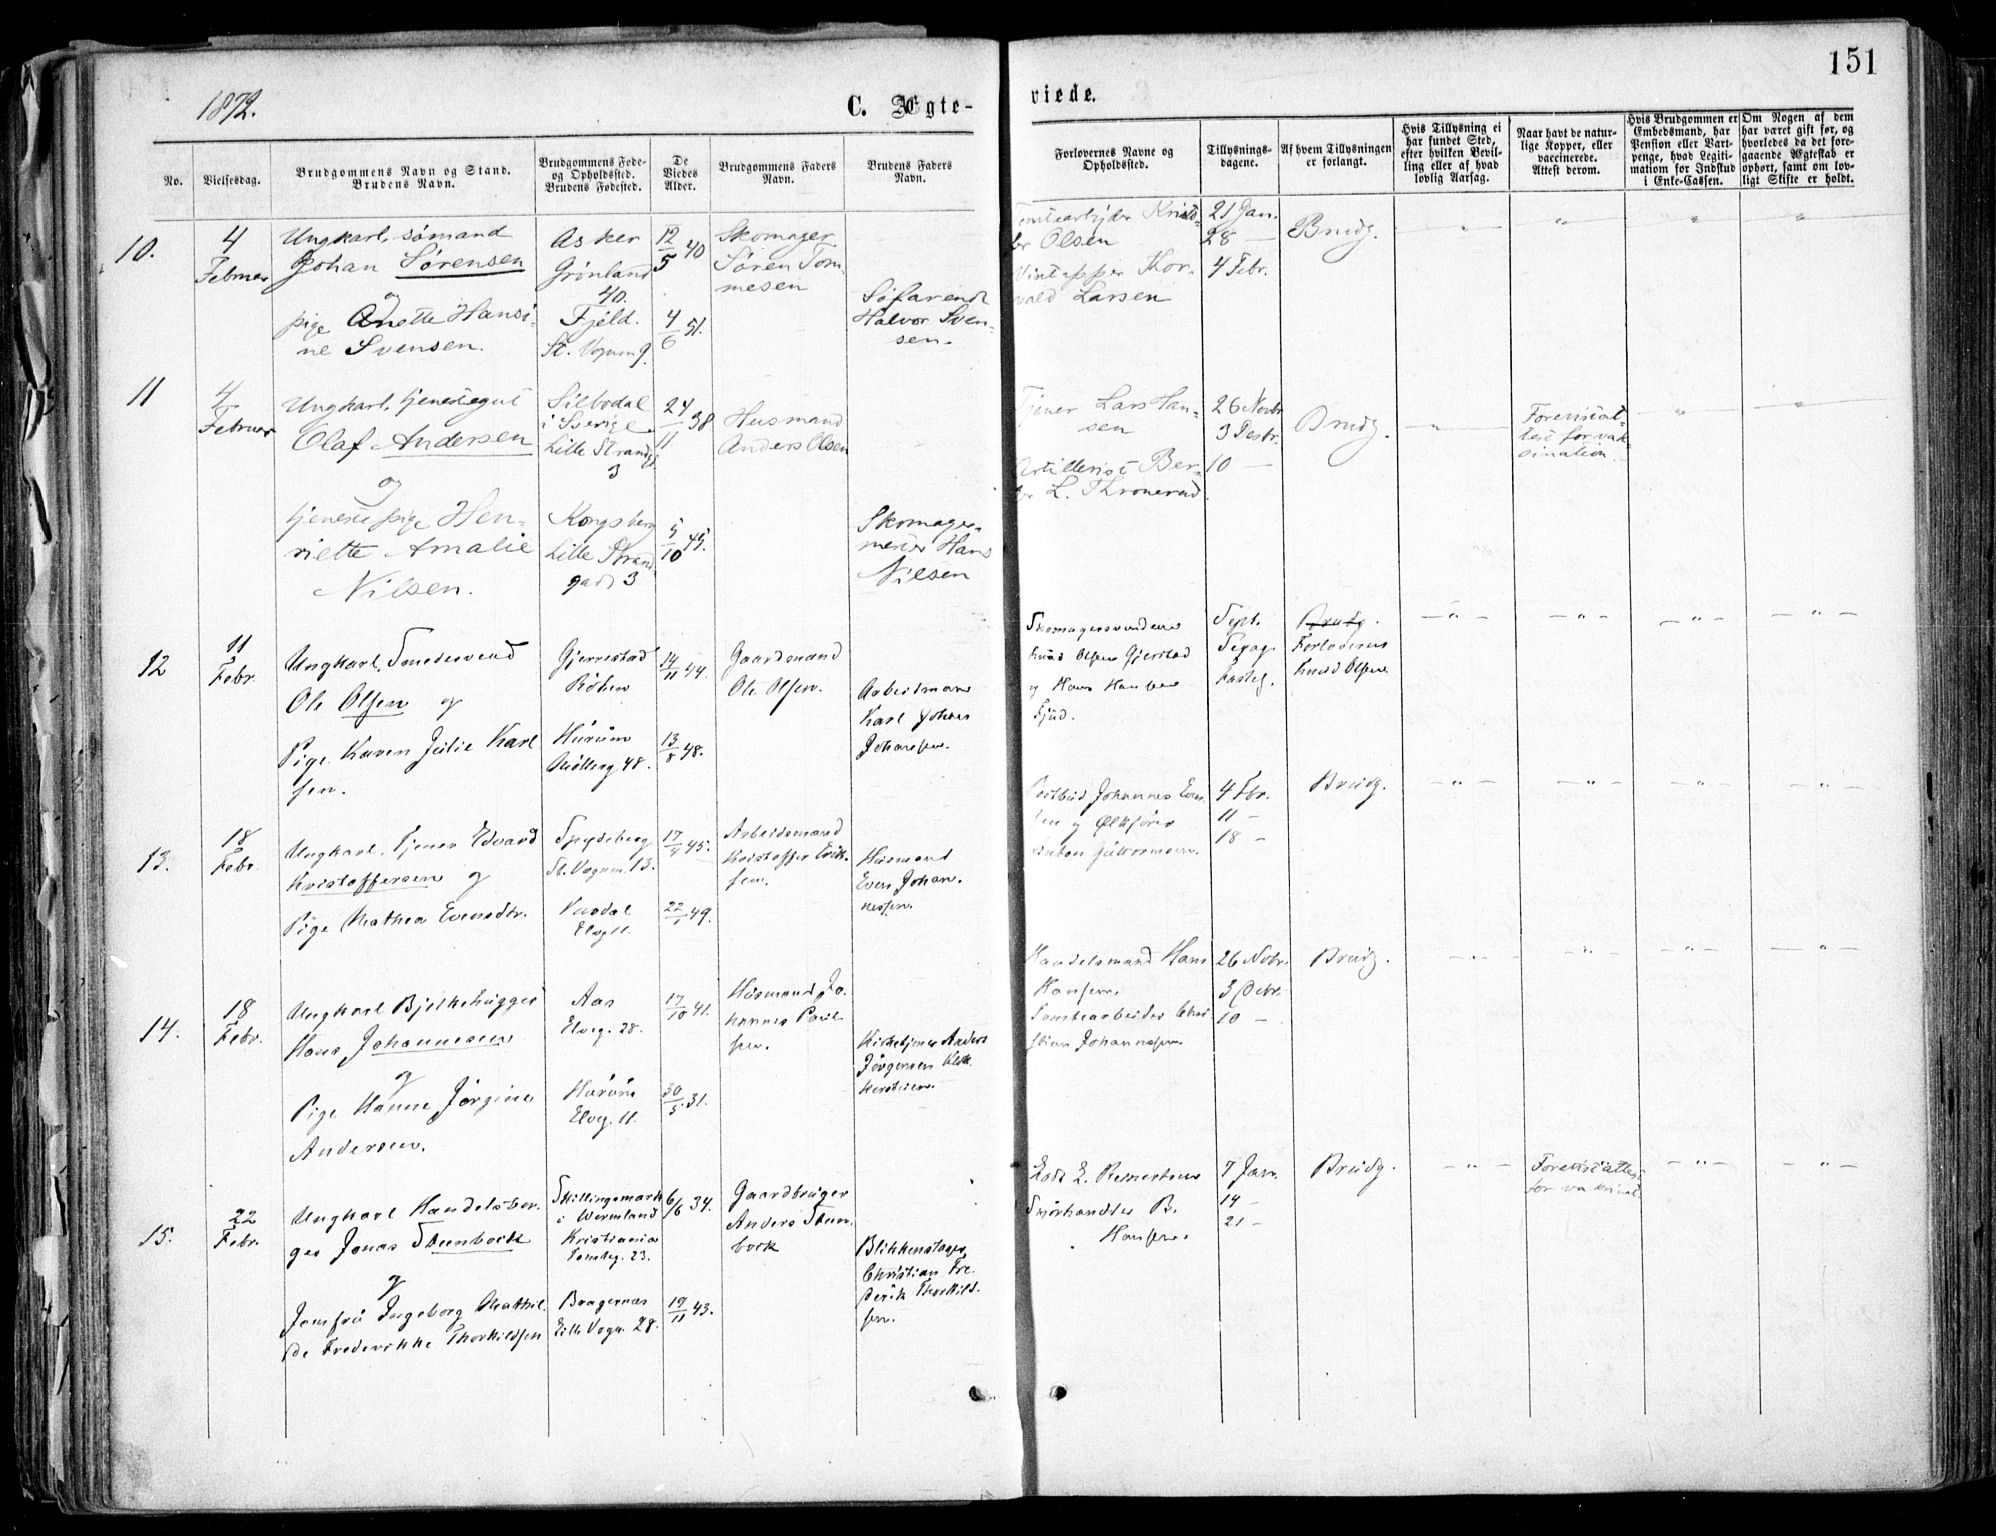 151
1872.
C. Ægte-
viede.
No.
Vielsesdag.
Brudgommens Navn og Stand.
Brudens Navn.
Brudgommens Føde-
og Opholdssted.
Brudens Fødested.
De
Viedes
Alder.
Brudgommens Faders
Navn.
Brudens Faders
Navn.
Forlovernes Navne og
Opholdssted.
Tillysnings-
dagene.
Af hvem Tillysningen
er forlangt.
Hvis Tillysning ei
har fundet Sted,
efter hvilken Bevil-
ling eller af hvad
lovlig Aarsag.
Naar havt de natur-
lige Kopper, eller
vaccinerede.
Attest derom.
Hvis Brudgommen er
Embedsmand, har
Pension eller Vart-
penge, hvad Legiti-
mation for Indskud
i Enke-Cassen.
Om Nogen af dem
har været gift før, og
hvorledes da det fore-
gaaende Ægteskab er
ophørt, samt om lov-
ligt Skifte er holdt.
10.
4
Februar
Ungkarl, sømand
Johan Sørensen
og
pige Anette Hansi-
ne Svensen.
Asker
Grønland
40.
Fjeld.
St. Vognmg.
12/5 40
4/6 51.
Skomager
Søren Tom-
mesen
Søfarende
Halvor Sven-
sen.
Olsen
Thor-
vald Larsen
21 Jan.
28 —
4 Febr.
Brudg.
11
4
Februar
Ungkarl, tjenestegut
Olaf Andersen
og
tjenestepige Hen-
riette Amalie
Nilsen.
Silbodal
i Sverige
Lille Strandg.
3
Kongsberg
Lille Strand
gade 3
24/11 38
5/10 45.
Husmand
Anders Olsen
Skomager-
mester Hans
Nilsen
Tjener Lars Han-
sen
Artillerist Ber-
L. Thronerud.
26 Novbr
3 Desbr.
10 —
Brudg.
Forevist at-
test for vak-
sination.
12
11
Febr.
Ungkarl, Smedesvend
Ole Olsen og
Pige Karen Julie Karl
sen.
Gjerrestad
Røken
Hurum
Møllerg 48.
14/11 44.
13/8 48.
Gaardmand
Ole Olsen.
Arbeidsmand
Karl Johan
Johansen.
Skomagersvendene
Knud Olsen Gjerstad
og Hans Hansen
Fjud.
Sept.
Sexag.
Fasteg.
Brudg.
Forloveren
Knud Olsen
13.
18
Febr.
Ungkarl, Tjener Edvard
Kristoffersen og
Pige Mathea Evensdtr.
Spydeberg
St. Vognm. 13.
Vardal
Elvg 11.
17/4 45.
22/1 49.
Arbeidsmand
Kristoffer Erik-
sen.
Husmand
Even Johan-
nessen.
Postbud Johannes Even
sen og Ølkjører
Anton Guttormsen.
4 Fbr.
11 —
18 —
Brudg.
14.
18
Febr.
Ungkarl Bjelkehugger
Hans Johannesen
og
Pige Hanne Jørgine
Andersen.
Aas
Elveg. 28.
Hurum
Elveg. 11.
17/10 41.
30/5 31.
Husmand Jo-
hannes Paul-
sen.
Kirketjener Anders
Jørgensen
Handelsmand Hans
Hansen.
Tomtearbeider Chri
stian Johannesen.
26 Nobr.
3 Debr.
10 —
Brudg.
15.
22
Febr.
Ungkarl Handelsbor-
ger Jonas Stenbock
og
Jomfru Ingeborg Mathil
de Frederikke Thorkildsen
Skillingsmark
i Wermland
Kristiania
Tomteg. 23.
Bragernæs
Lille Vogn. 28.
6/6 34.
19/11 43.
Gaardbruger
Anders Sten-
bock
Blikkenslager
Christian Fre
derik Thorkild-
sen.
Smørhandler B.
Hansen.
7 Jan.
14 —
21 —
Brudg.
Forevist attest
for vaksinat.